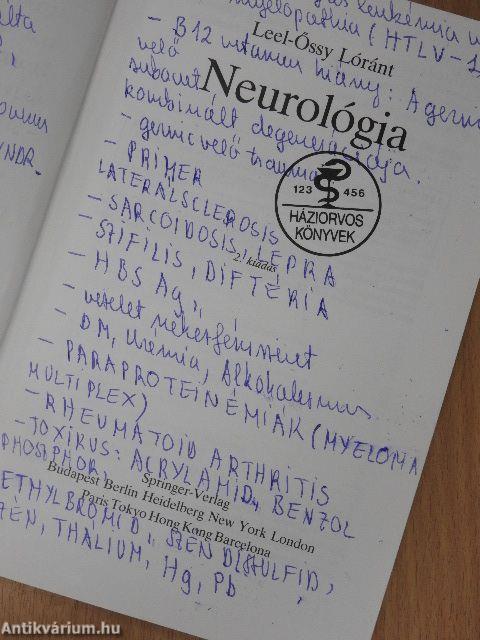 álta
leukémia
myelopathia (HTLV-1
Leel-Őssy Lóránt
- B12 vitamin hiány: A gerinc
velő
subacut
Neurológia
kombinált degenerációja.
- gerincvelő trauma
- PRIMER
LATERÁLSCLEROSIS
123 456
HÁZIORVOS
KÖNYVEK
- SARCOIDOSIS, LEPRA
2. kiadás
- SZIFILIS, DIFTÉRIA
- HBS Ag
- DM, Urémia, Alkoholizmus
- PARAPROTEINÉMIÁK (MYELOMA
MULTIPLEX)
- RHEUMATOID ARTHRITIS
- TOXIKUS: ACRYLAMID, BENZOL
PHOSPHOR,
Springer-Verlag
Budapest Berlin Heidelberg New York London
Paris Tokyo Hong Kong Barcelona
ETHYLBROMID, SZÉN DISZULFID,
ZÉN, THALIUM, Hg, Pb
YNDR.
Antikvárium.hu